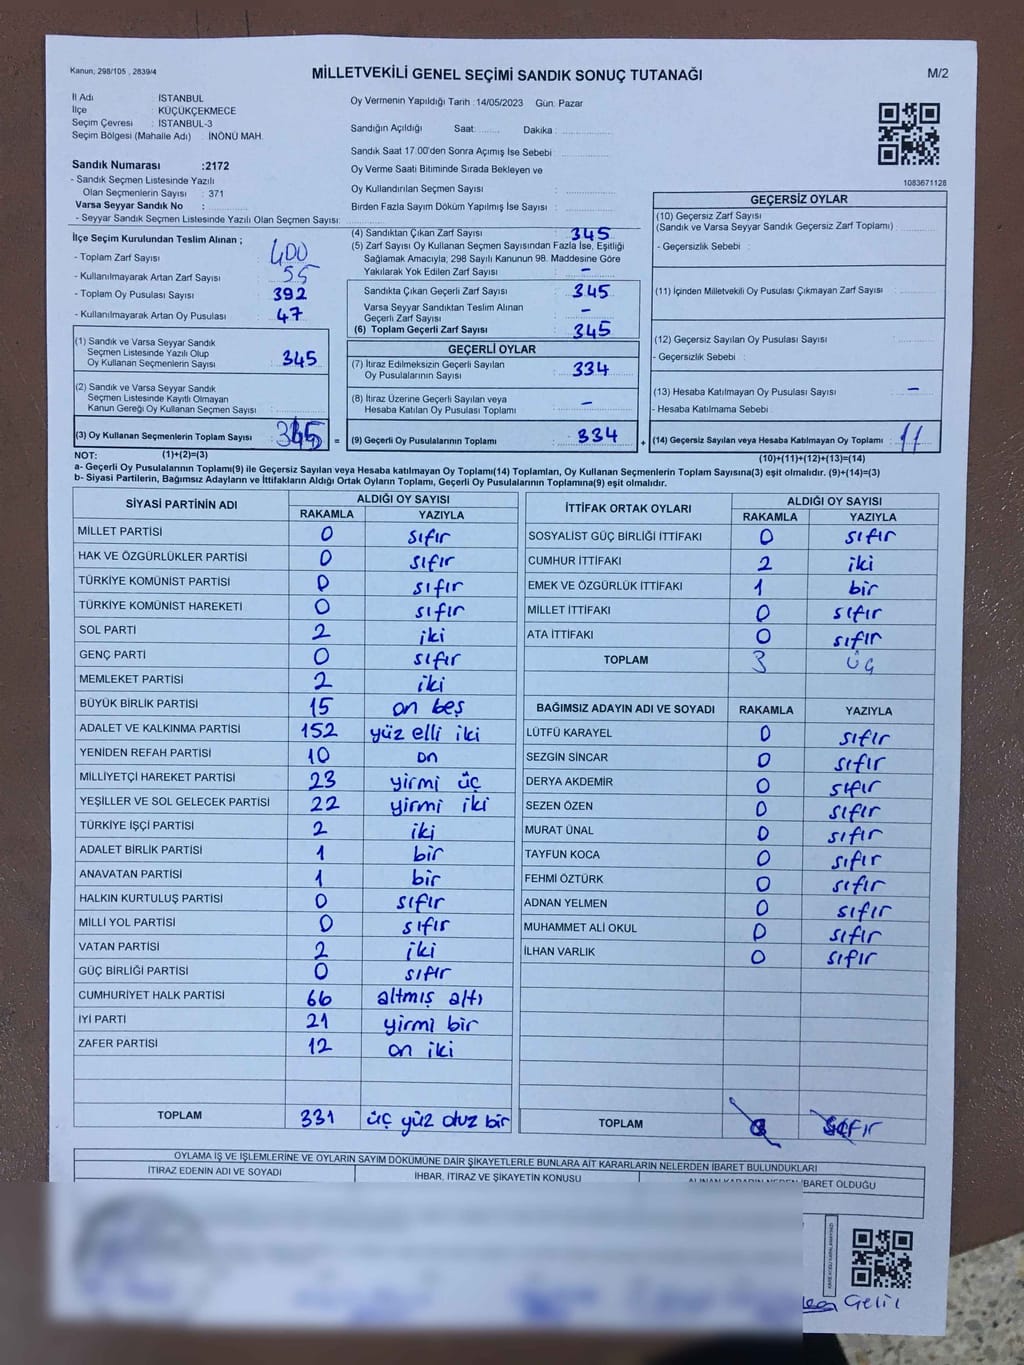 Kanun; 298/105 , 2839/4
MİLLETVEKİLİ GENEL SEÇİMİ SANDIK SONUÇ TUTANAĞI
M/2
İl Adı : İSTANBUL
İlçe : KÜÇÜKÇEKMECE
Seçim Çevresi : İSTANBUL-3
Seçim Bölgesi (Mahalle Adı) : İNÖNÜ MAH.
Sandık Numarası :2172
- Sandık Seçmen Listesinde Yazılı
Olan Seçmenlerin Sayısı : 371
Varsa Seyyar Sandık No :
- Seyyar Sandık Seçmen Listesinde Yazılı Olan Seçmen Sayısı:
Oy Vermenin Yapıldığı Tarih : 14/05/2023 Gün: Pazar
Sandığın Açıldığı Saat: Dakika :
Sandık Saat 17:00'den Sonra Açımış İse Sebebi :
Oy Verme Saati Bitiminde Sırada Bekleyen ve
Oy Kullandırılan Seçmen Sayısı :
Birden Fazla Sayım Döküm Yapılmış İse Sayısı :
1083671128
İlçe Seçim Kurulundan Teslim Alınan ;
- Toplam Zarf Sayısı : 400
- Kullanılmayarak Artan Zarf Sayısı : 55
- Toplam Oy Pusulası Sayısı : 392
- Kullanılmayarak Artan Oy Pusulası : 47
(1) Sandık ve Varsa Seyyar Sandık
Seçmen Listesinde Yazılı Olup
Oy Kullanan Seçmenlerin Sayısı : 345
(2) Sandık ve Varsa Seyyar Sandık
Seçmen Listesinde Kayıtlı Olmayan
Kanun Gereği Oy Kullanan Seçmen Sayısı :
(3) Oy Kullanan Seçmenlerin Toplam Sayısı : 345 =
(4) Sandıktan Çıkan Zarf Sayısı : 345
(5) Zarf Sayısı Oy Kullanan Seçmen Sayısından Fazla İse, Eşitliği
Sağlamak Amacıyla; 298 Sayılı Kanunun 98. Maddesine Göre
Yakılarak Yok Edilen Zarf Sayısı : -
Sandıkta Çıkan Geçerli Zarf Sayısı : 345
Varsa Seyyar Sandıktan Teslim Alınan
Geçerli Zarf Sayısı : -
(6) Toplam Geçerli Zarf Sayısı : 345
GEÇERLİ OYLAR
(7) İtiraz Edilmeksizin Geçerli Sayılan
Oy Pusulalarının Sayısı : 334
(8) İtiraz Üzerine Geçerli Sayılan veya
Hesaba Katılan Oy Pusulası Toplamı : -
(9) Geçerli Oy Pusulalarının Toplamı : 334 +
GEÇERSİZ OYLAR
(10) Geçersiz Zarf Sayısı
(Sandık ve Varsa Seyyar Sandık Geçersiz Zarf Toplamı) :
- Geçersizlik Sebebi :
(11) İçinden Milletvekili Oy Pusulası Çıkmayan Zarf Sayısı :
(12) Geçersiz Sayılan Oy Pusulası Sayısı :
- Geçersizlik Sebebi :
(13) Hesaba Katılmayan Oy Pusulası Sayısı : -
- Hesaba Katılmama Sebebi :
(14) Geçersiz Sayılan veya Hesaba Katılmayan Oy Toplamı : 11
NOT: (1)+(2)=(3) (10)+(11)+(12)+(13)=(14)
a- Geçerli Oy Pusulalarının Toplamı(9) ile Geçersiz Sayılan veya Hesaba katılmayan Oy Toplamı(14) Toplamları, Oy Kullanan Seçmenlerin Toplam Sayısına(3) eşit olmalıdır. (9)+(14)=(3)
b- Siyasi Partilerin, Bağımsız Adayların ve İttifakların Aldığı Ortak Oyların Toplamı, Geçerli Oy Pusulalarının Toplamına(9) eşit olmalıdır.
SİYASİ PARTİNİN ADI ALDIĞI OY SAYISI
RAKAMLA YAZIYLA
MİLLET PARTİSİ 0 sıfır
HAK VE ÖZGÜRLÜKLER PARTİSİ 0 sıfır
TÜRKİYE KOMÜNİST PARTİSİ 0 sıfır
TÜRKİYE KOMÜNİST HAREKETİ 0 sıfır
SOL PARTİ 2 iki
GENÇ PARTİ 0 sıfır
MEMLEKET PARTİSİ 2 iki
BÜYÜK BİRLİK PARTİSİ 15 on beş
ADALET VE KALKINMA PARTİSİ 152 yüz elli iki
YENİDEN REFAH PARTİSİ 10 on
MİLLİYETÇİ HAREKET PARTİSİ 23 yirmi üç
YEŞİLLER VE SOL GELECEK PARTİSİ 22 yirmi iki
TÜRKİYE İŞÇİ PARTİSİ 2 iki
ADALET BİRLİK PARTİSİ 1 bir
ANAVATAN PARTİSİ 1 bir
HALKIN KURTULUŞ PARTİSİ 0 sıfır
MİLLİ YOL PARTİSİ 0 sıfır
VATAN PARTİSİ 2 iki
GÜÇ BİRLİĞİ PARTİSİ 0 sıfır
CUMHURİYET HALK PARTİSİ 66 altmış altı
İYİ PARTİ 21 yirmi bir
ZAFER PARTİSİ 12 on iki
TOPLAM 331 üç yüz otuz bir
İTTİFAK ORTAK OYLARI ALDIĞI OY SAYISI
RAKAMLA YAZIYLA
SOSYALİST GÜÇ BİRLİĞİ İTTİFAKI 0 sıfır
CUMHUR İTTİFAKI 2 iki
EMEK VE ÖZGÜRLÜK İTTİFAKI 1 bir
MİLLET İTTİFAKI 0 sıfır
ATA İTTİFAKI 0 sıfır
TOPLAM 3 üç
BAĞIMSIZ ADAYIN ADI VE SOYADI RAKAMLA YAZIYLA
LÜTFÜ KARAYEL 0 sıfır
SEZGİN SİNCAR 0 sıfır
DERYA AKDEMİR 0 sıfır
SEZEN ÖZEN 0 sıfır
MURAT ÜNAL 0 sıfır
TAYFUN KOCA 0 sıfır
FEHMİ ÖZTÜRK 0 sıfır
ADNAN YELMEN 0 sıfır
MUHAMMET ALİ OKUL 0 sıfır
İLHAN VARLIK 0 sıfır
TOPLAM sıfır
OYLAMA İŞ VE İŞLEMLERİNE VE OYLARIN SAYIM DÖKÜMÜNE DAİR ŞİKAYETLERLE BUNLARA AİT KARARLARIN NELERDEN İBARET BULUNDUKLARI
İTİRAZ EDENİN ADI VE SOYADI İHBAR, İTİRAZ VE ŞİKAYETİN KONUSU ALINAN KARARIN NEDEN İBARET OLDUĞU
Gelil